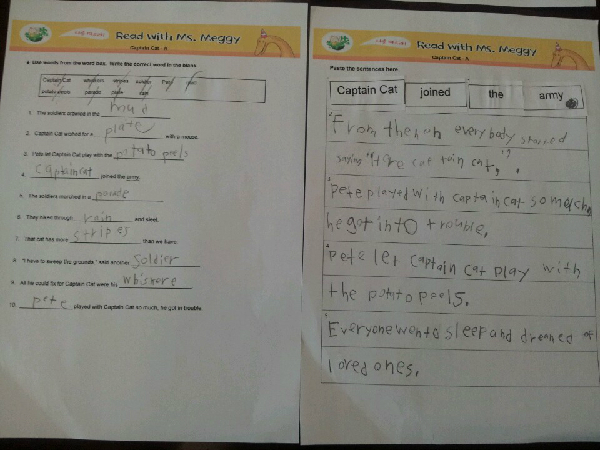 Read with Ms. Meggy
Captain Cat - A
Use words from the word box. Write the correct word in the blank.
Captain Cat whiskers stripes soldier Pete rain
potato peels parade plate
1. The soldiers entered in the
2. Captain Cat wished for a plate with a mouse.
3. Pete let Captain Cat play with the potato peels
4. Captain cat joined the army.
5. The soldiers marched in a parade
6. They went through rain and sleet.
7. That cat has more stripes than we have.
8. "I have to sweep the grounds," said another soldier
9. All he could fix for Captain Cat were his whiskers
10. pete played with Captain Cat so much, he got in trouble.
Read with Ms. Meggy
Captain Cat - A
Paste the sentences here.
Captain Cat joined the army
From then on everybody started
saying "Hire cat rain cat,".
pete played with captain cat so much
he got into trouble.
pete let captain cat play with
the potato peels.
Everyone went to sleep and dreamed of
loved ones.